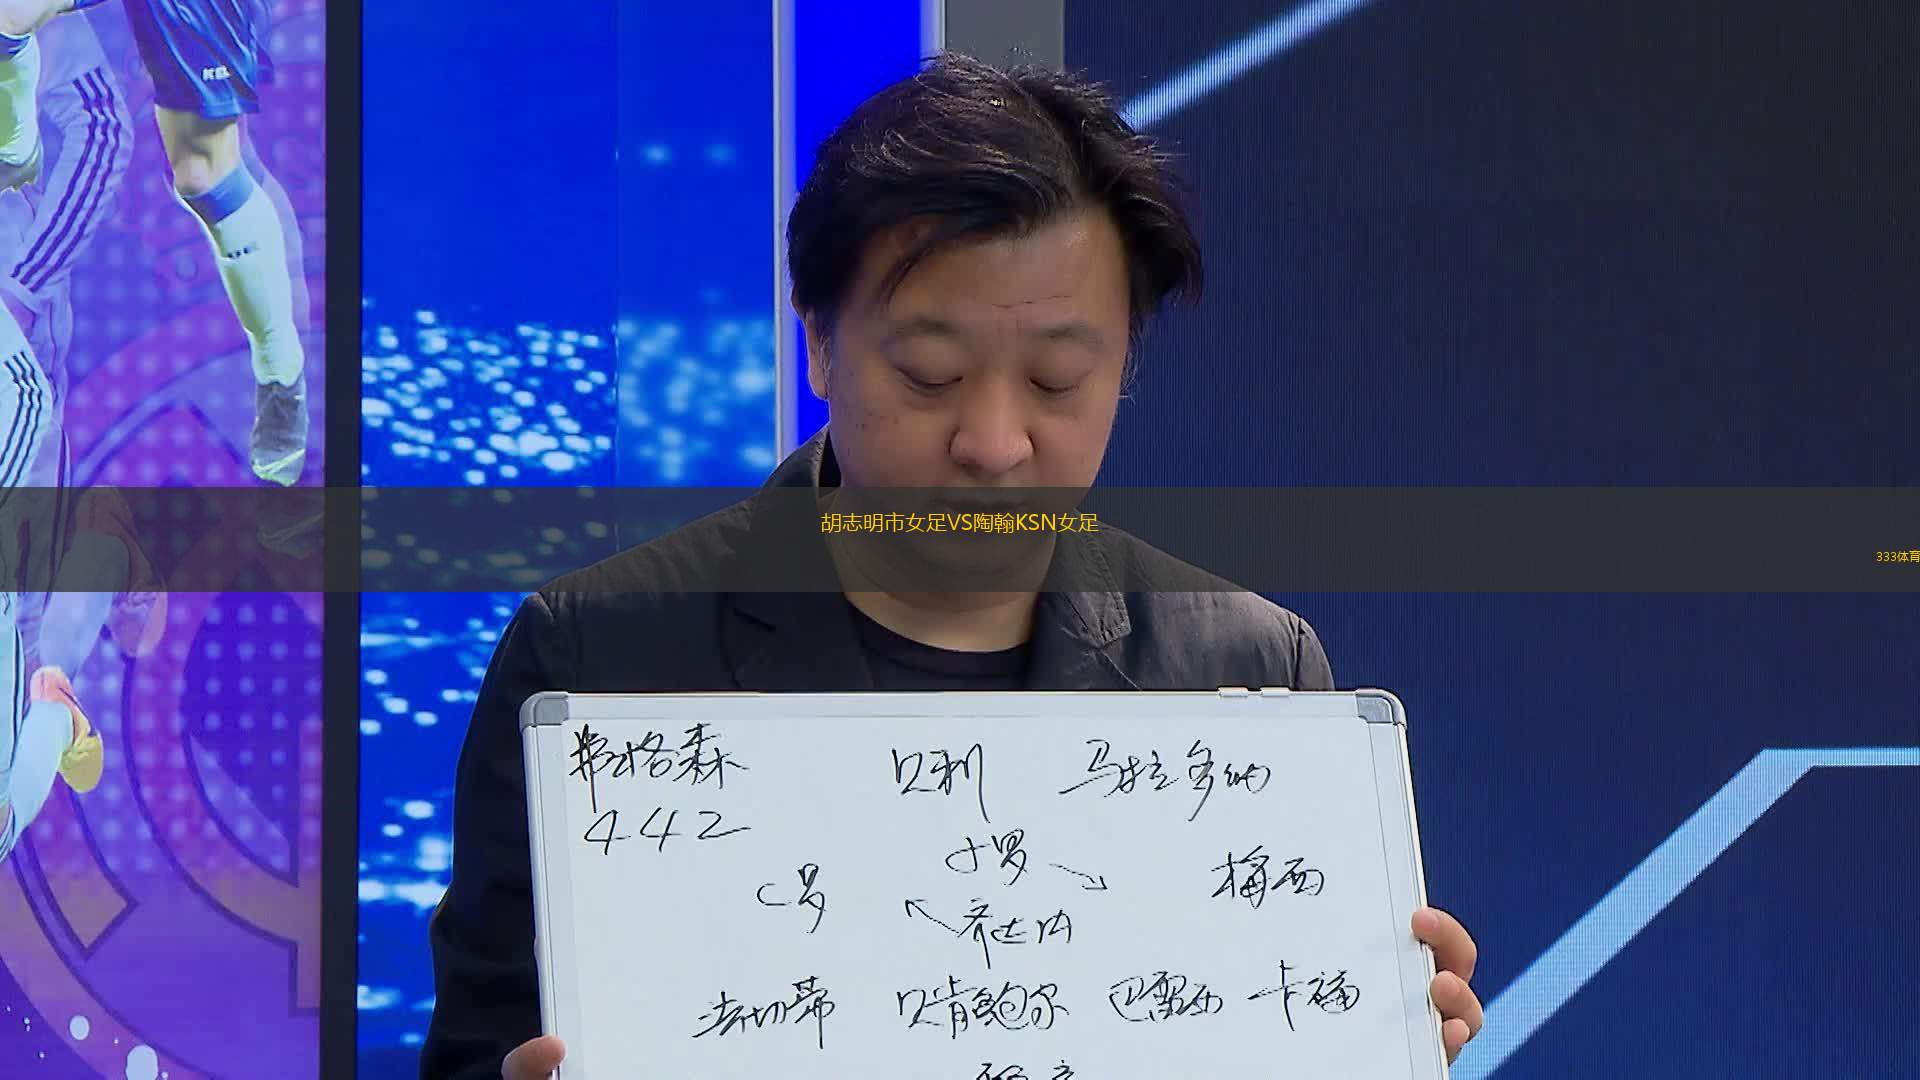 胡志明市女足VS陶翰KSN女足
333体育
弗格森 贝利 马拉多纳
442
小罗
C罗 梅西
齐达内
法切蒂 贝肯鲍尔 巴雷西 卡福